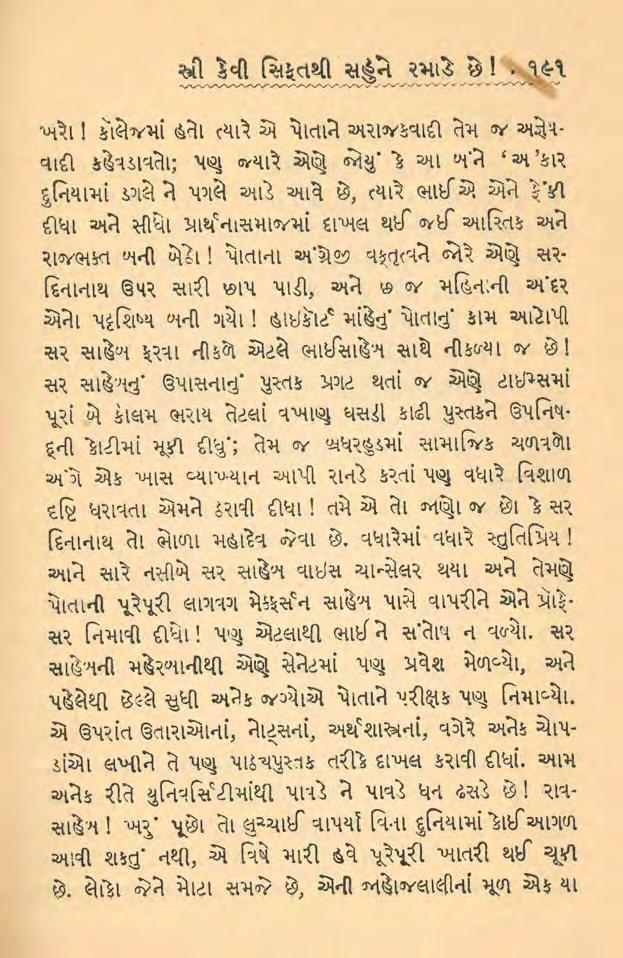 સ્ત્રી કેવી સિફતથી સહુંને રમાડે છે! • ૧૯૧
ખરો! કૉલેજમાં હતો ત્યારે એ પોતાને અરાજકવાદી તેમ જ અજ્ઞેય-
વાદી કહેવડાવતો; પણ જ્યારે એણે જોયું કે આ બંને ‘અ’કાર
દુનિયામાં ડગલે ને પગલે આડે આવે છે, ત્યારે ભાઈએ એને ફેંકી
દીધા અને સીધો પ્રાર્થનાસમાજમાં દાખલ થઈ જઈ આસ્તિક અને
રાજભક્ત બની બેઠો! પોતાના અંગ્રેજી વક્તૃત્વને જોરે એણે સર-
દિનાનાથ ઉપર સારી છાપ પાડી, અને છ જ મહિનાની અંદર
એનો પટ્ટશિષ્ય બની ગયો! હાઇકૉર્ટ માંહેનું પોતાનું કામ આટોપી
સર સાહેબ ફરવા નીકળે એટલે ભાઈસાહેબ સાથે નીકળ્યા જ છે!
સર સાહેબનું ઉપાસનાનું પુસ્તક પ્રગટ થતાં જ એણે ટાઇમ્સમાં
પૂરાં બે કોલમ ભરાય તેટલાં વખાણ ઘસડી કાઢી પુસ્તકને ઉપનિષ-
દ્ની કોટીમાં મૂકી દીધું; તેમ જ બ્રધરહુડમાં સામાજિક ચળવળો
અંગે એક ખાસ વ્યાખ્યાન આપી રાનડે કરતાં પણ વધારે વિશાળ
દૃષ્ટિ ધરાવતા એમને ઠરાવી દીધા! તમે એ તો જાણો જ છો કે સર
દિનાનાથ તો ભોળા મહાદેવ જેવા છે. વધારેમાં વધારે સ્તુતિપ્રિય!
આને સારે નસીબે સર સાહેબ વાઇસ ચાન્સેલર થયા અને તેમણે
પોતાની પૂરેપૂરી લાગવગ મેક્ફર્સન સાહેબ પાસે વાપરીને એને પ્રૉફે-
સર નિમાવી દીધો! પણ એટલાથી ભાઈ ને સંતોષ ન વળ્યો. સર
સાહેબની મહેરબાનીથી એણે સેનેટમાં પણ પ્રવેશ મેળવ્યો, અને
પહેલેથી છેલ્લે સુધી અનેક જગ્યોએ પોતાને પરીક્ષક પણ નિમાવ્યો.
એ ઉપરાંત ઉતારાઓનાં, નોટ્સનાં, અર્થશાસ્ત્રનાં, વગેરે અનેક ચોપ-
ડાંઓ લખીને તે પણ પાઠ્યપુસ્તક તરીકે દાખલ કરાવી દીધાં. આમ
અનેક રીતે યુનિવર્સિટીમાંથી પાવડે ને પાવડે ધન ઢસડે છે! રાવ-
સાહેબ! ખરું પૂછો તો લુચ્ચાઈ વાપર્યા વિના દુનિયામાં કોઈ આગળ
આવી શકતું નથી, એ વિષે મારી હવે પૂરેપૂરી ખાતરી થઈ ચૂકી
છે. લોકો જેને મોટા સમજે છે, એની જાહોજલાલીનાં મૂળ એક યા